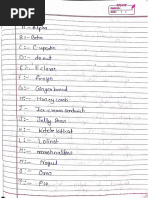 A:- Alpha
B:- Beta
C:- Cupcake
D:- donut
E:- Eclair
F:- Froyo
G:- Gingerbread
H:- Honey comb
I:- Ice cream sandwich
J:- Jelly Bean
K:- kitkat
L:- Lollipop
M:- marshmallow
N:- Nougat
O:- Oreo
P:- Pie